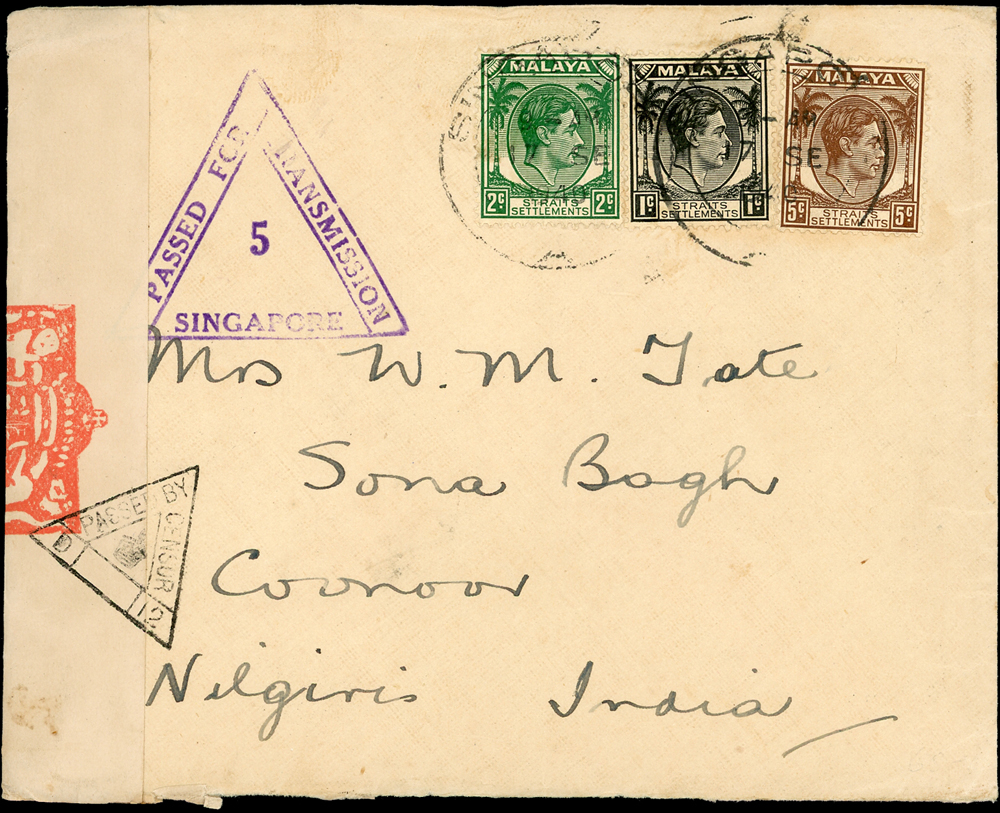 MALAYA
2c STRAITS SETTLEMENTS 2c
MALAYA
1c STRAITS SETTLEMENTS 1c
MALAYA
5c STRAITS SETTLEMENTS 5c
17 SE
PASSED FOR TRANSMISSION
5
SINGAPORE
Mrs W. M. Tate
Sona Bagh
Coonoor
Nilgiris India
PASSED BY CENSOR
D
12